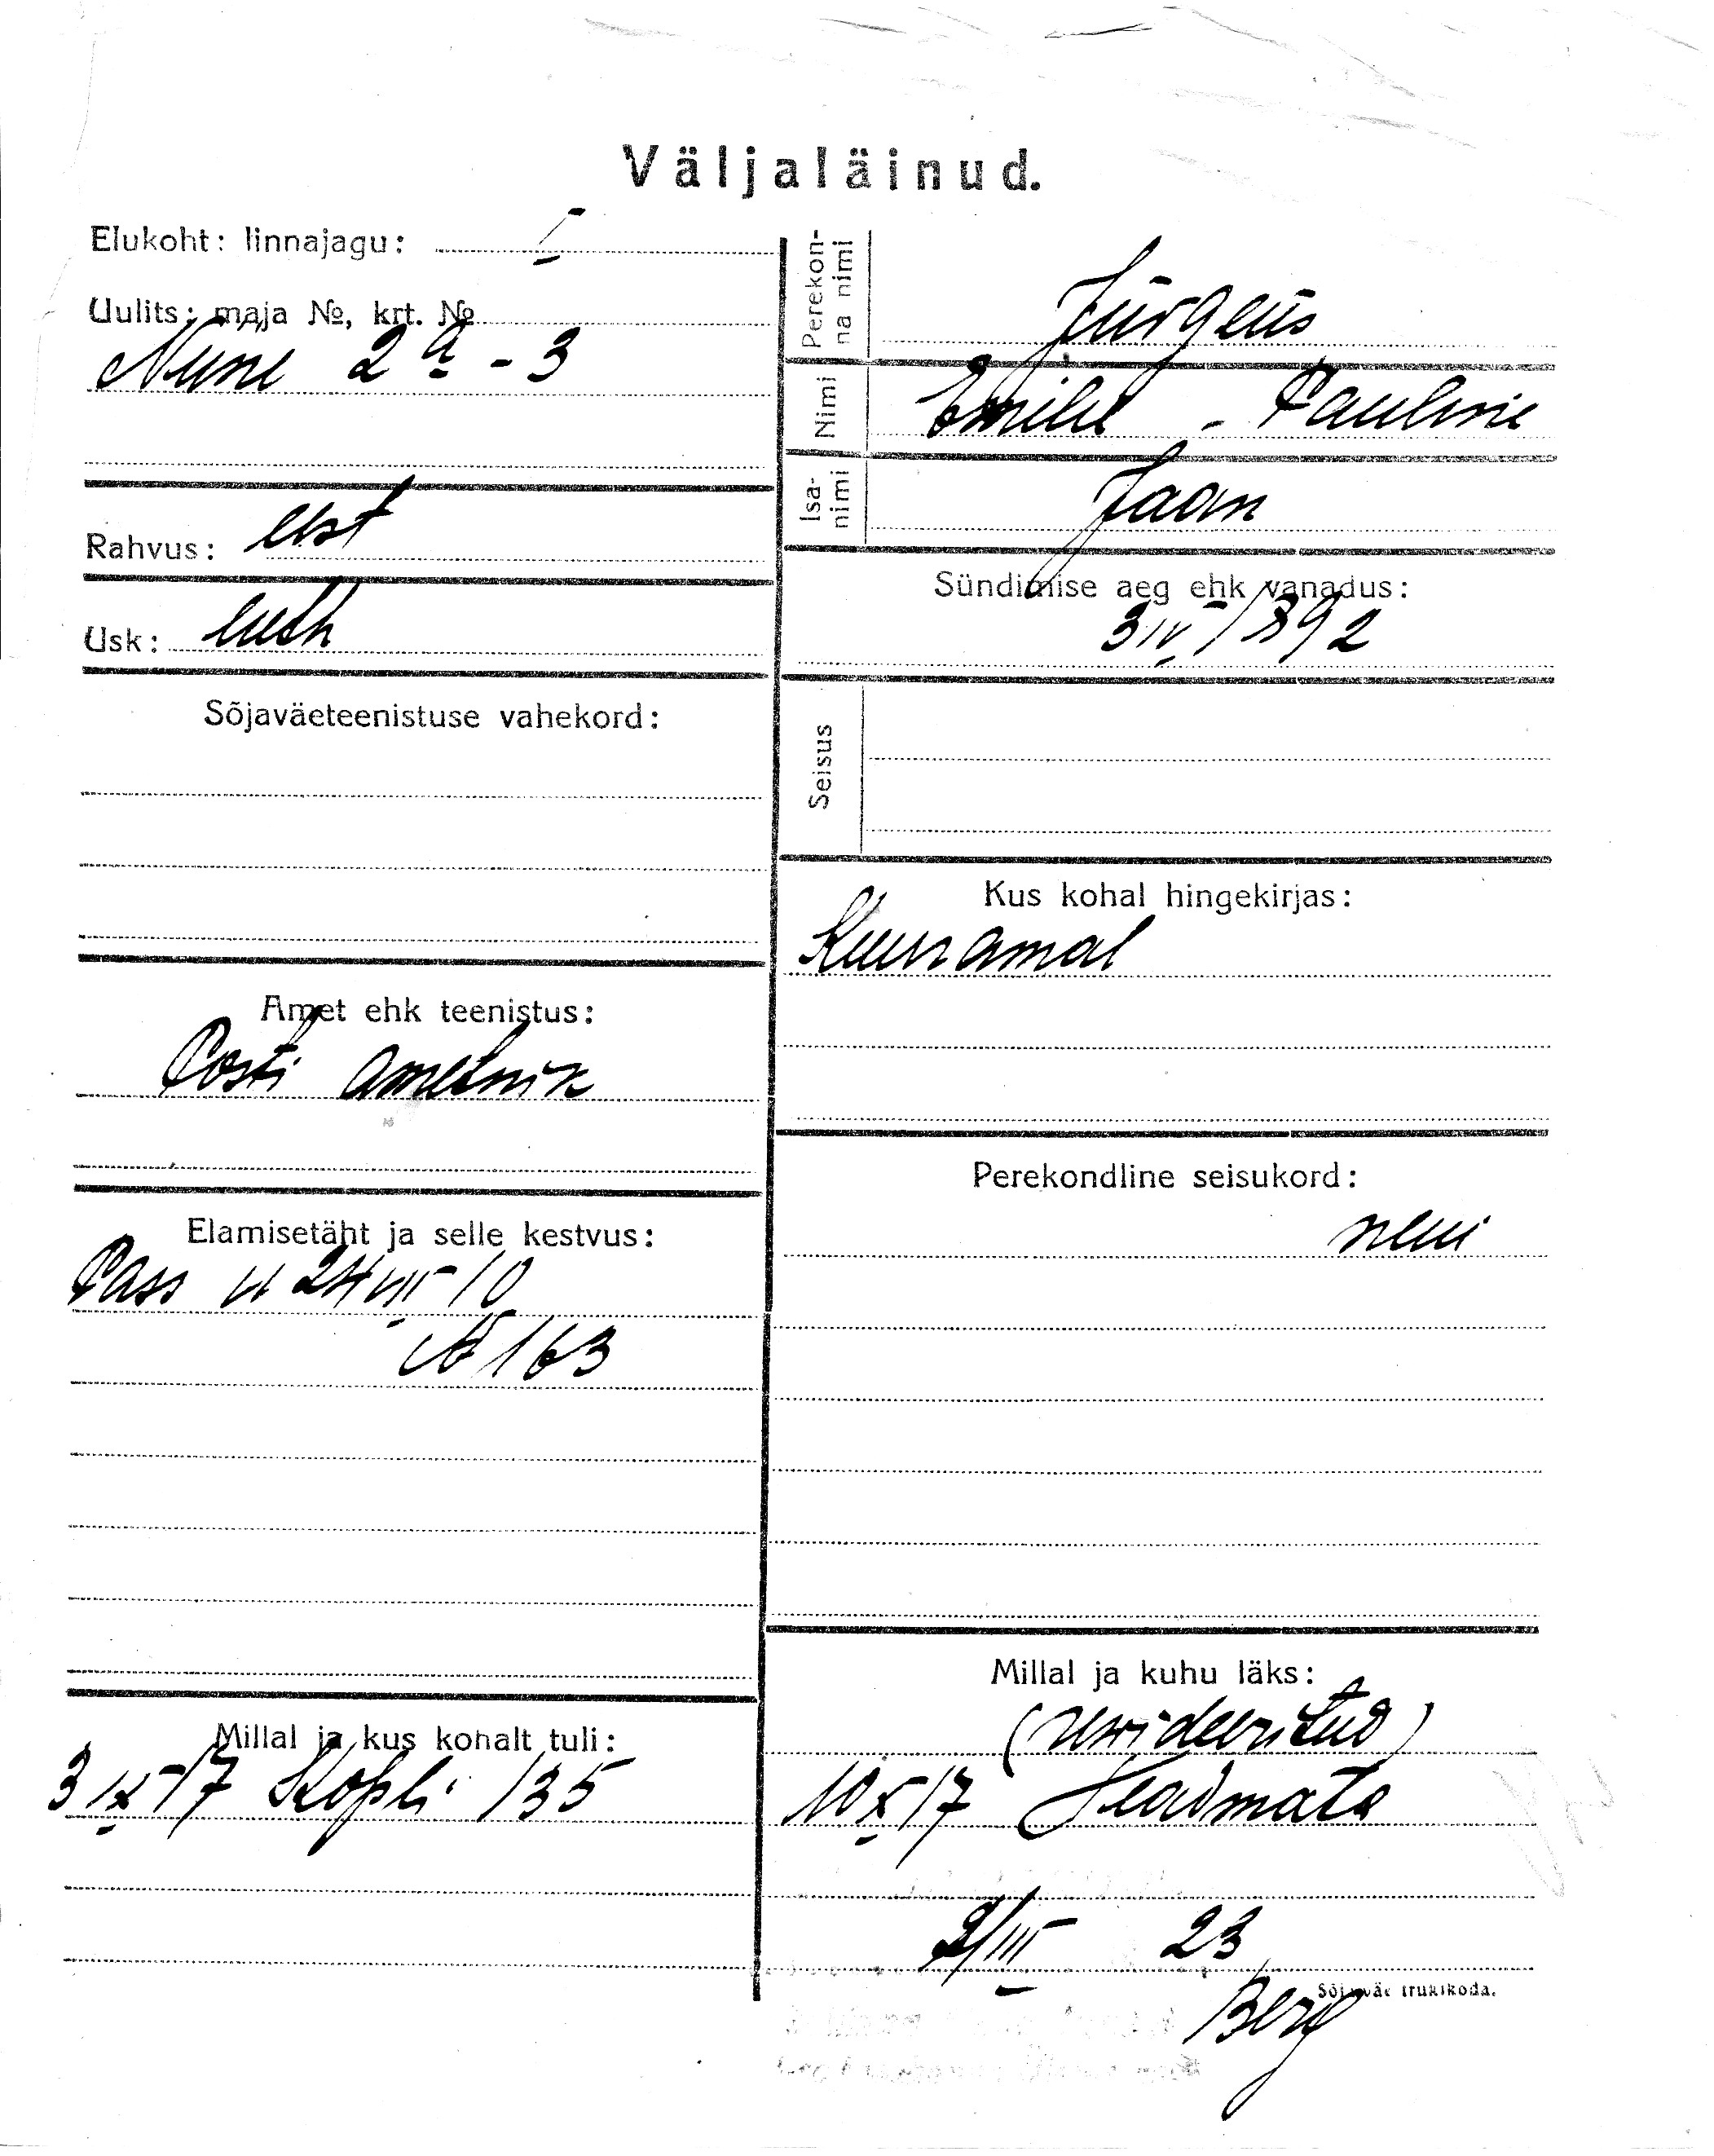 Väljaläinud.
Elukoht: linnajagu: I
Uulits: maja №, krt. №
Nune 2a - 3
Rahvus: est
Usk: luth
Sõjaväeteenistuse vahekord:
Amet ehk teenistus:
Posti ametnik
Elamisetäht ja selle kestvus:
Pass 24 VIII 10
№ 163
Millal ja kus kohalt tuli:
3 IX 17 Kopli 135
Perekonna nimi
Jürgens
Nimi
Emilie - Pauline
Isanimi
Jaan
Sündimise aeg ehk vanadus:
3 IV 1892
Seisus
Kus kohal hingekirjas:
Perekondline seisukord:
neiu
Millal ja kuhu läks:
(revideeritud)
10 X 17 Teadmata
2/III 23
Sõjaväe trükikoda.
Berg